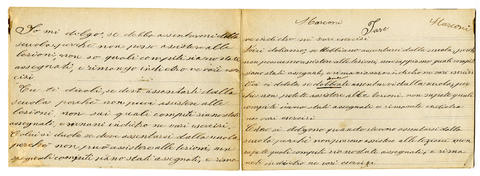 Io mi dolgo, se debbo assentarmi dalla
scuola, perchè non posso assistere alle
lezioni, non so quali compiti siano stati
assegnati, e rimango indietro ne' vari eser
cizi
Tu ti duoli, se devi assentarti dalla
scuola perchè non puoi assistere alle
lezioni, non sai quali compiti siano stati
assegnati, e rimani indietro ne' vari esercizi.
Colui si duole se deve assentarsi dalla scuola
perchè non può assistere alle lezioni, non
sa quali compiti siano stati assegnati, e rima
Marconi Marconi
ne indietro ne' vari esercizi
Noi dogliamo, se dobbiamo assentarci dalla scuola, perchè
non possiamo assistere alle lezioni, non sappiamo quali compiti
siano stati assegnati, e rimaniamo indietro ne' vari esercizi
Voi vi dolete se dobbiate assentarvi dalla scuola, per
chè non potete assistere alle lezioni, non sapete quali
compiti siano stati assegnati e rimanete indietro
ne' vari esercizi
si dolgono quando devono assentarsi dalla
scuola perchè non possono assistere alle lezioni non
sanno quali compiti siano stati assegnati, e rima
indietro ne' vari esercizi